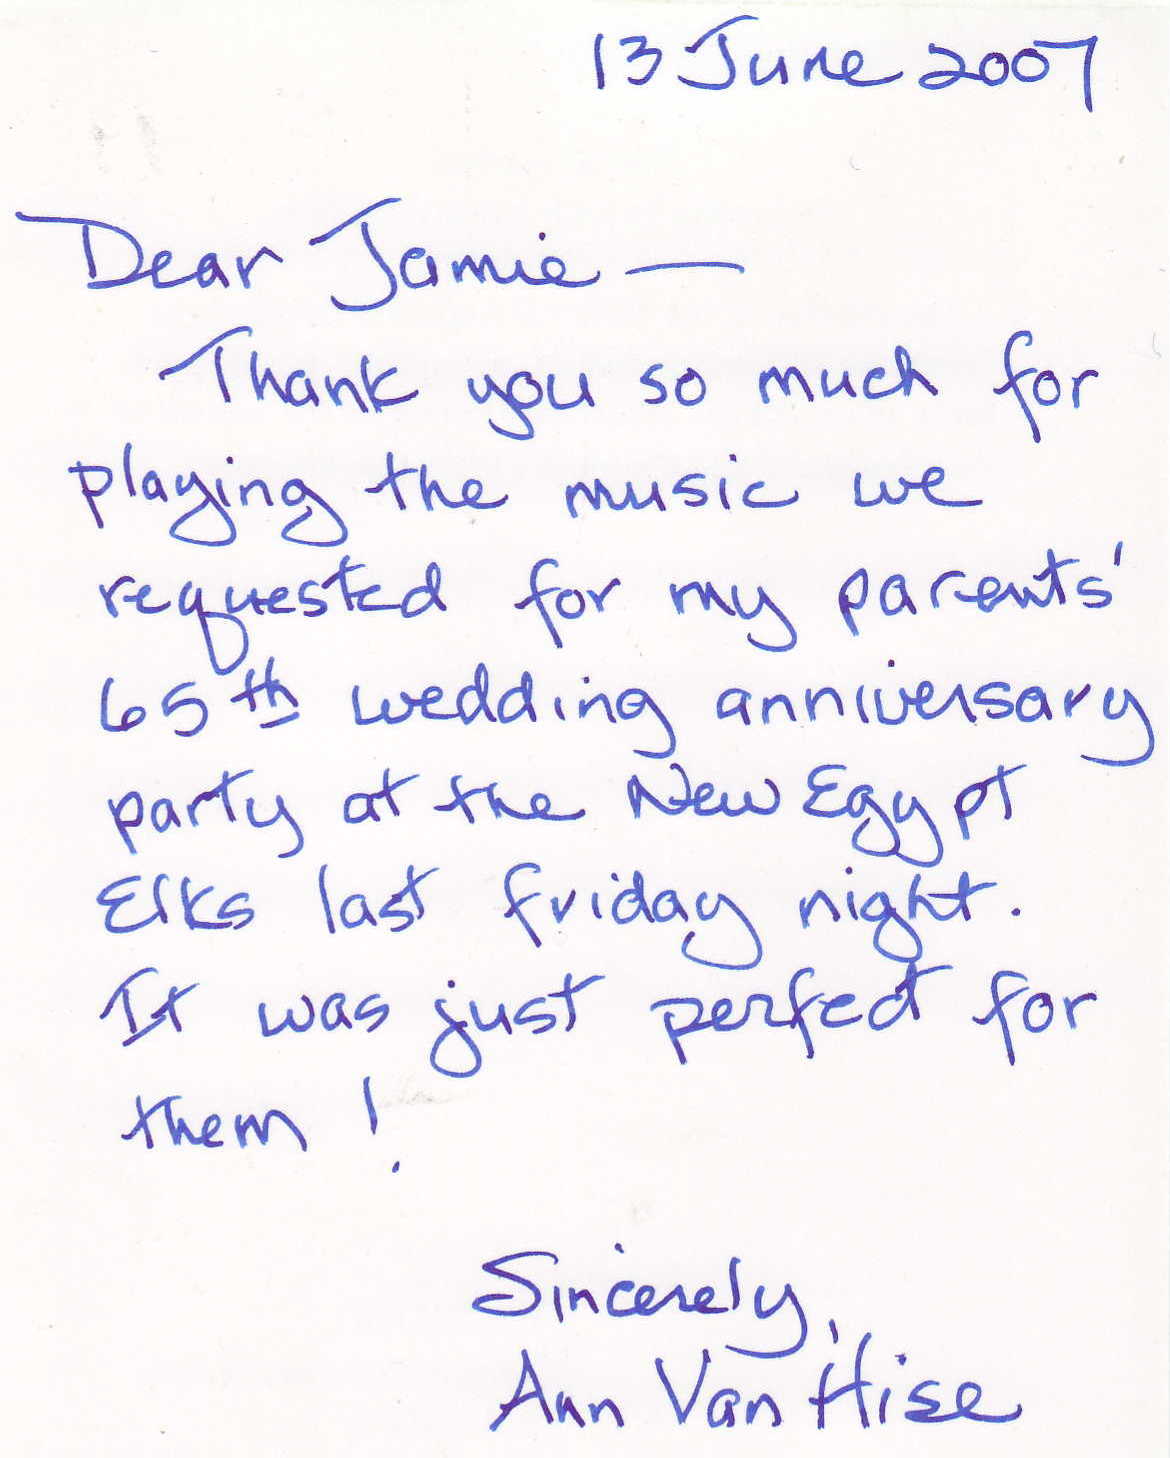 13 June 2007
Dear Jamie —
Thank you so much for
playing the music we
requested for my parents'
65th wedding anniversary
party at the New Egypt
Elks last friday night.
It was just perfect for
them!
Sincerely,
Ann Van Hise